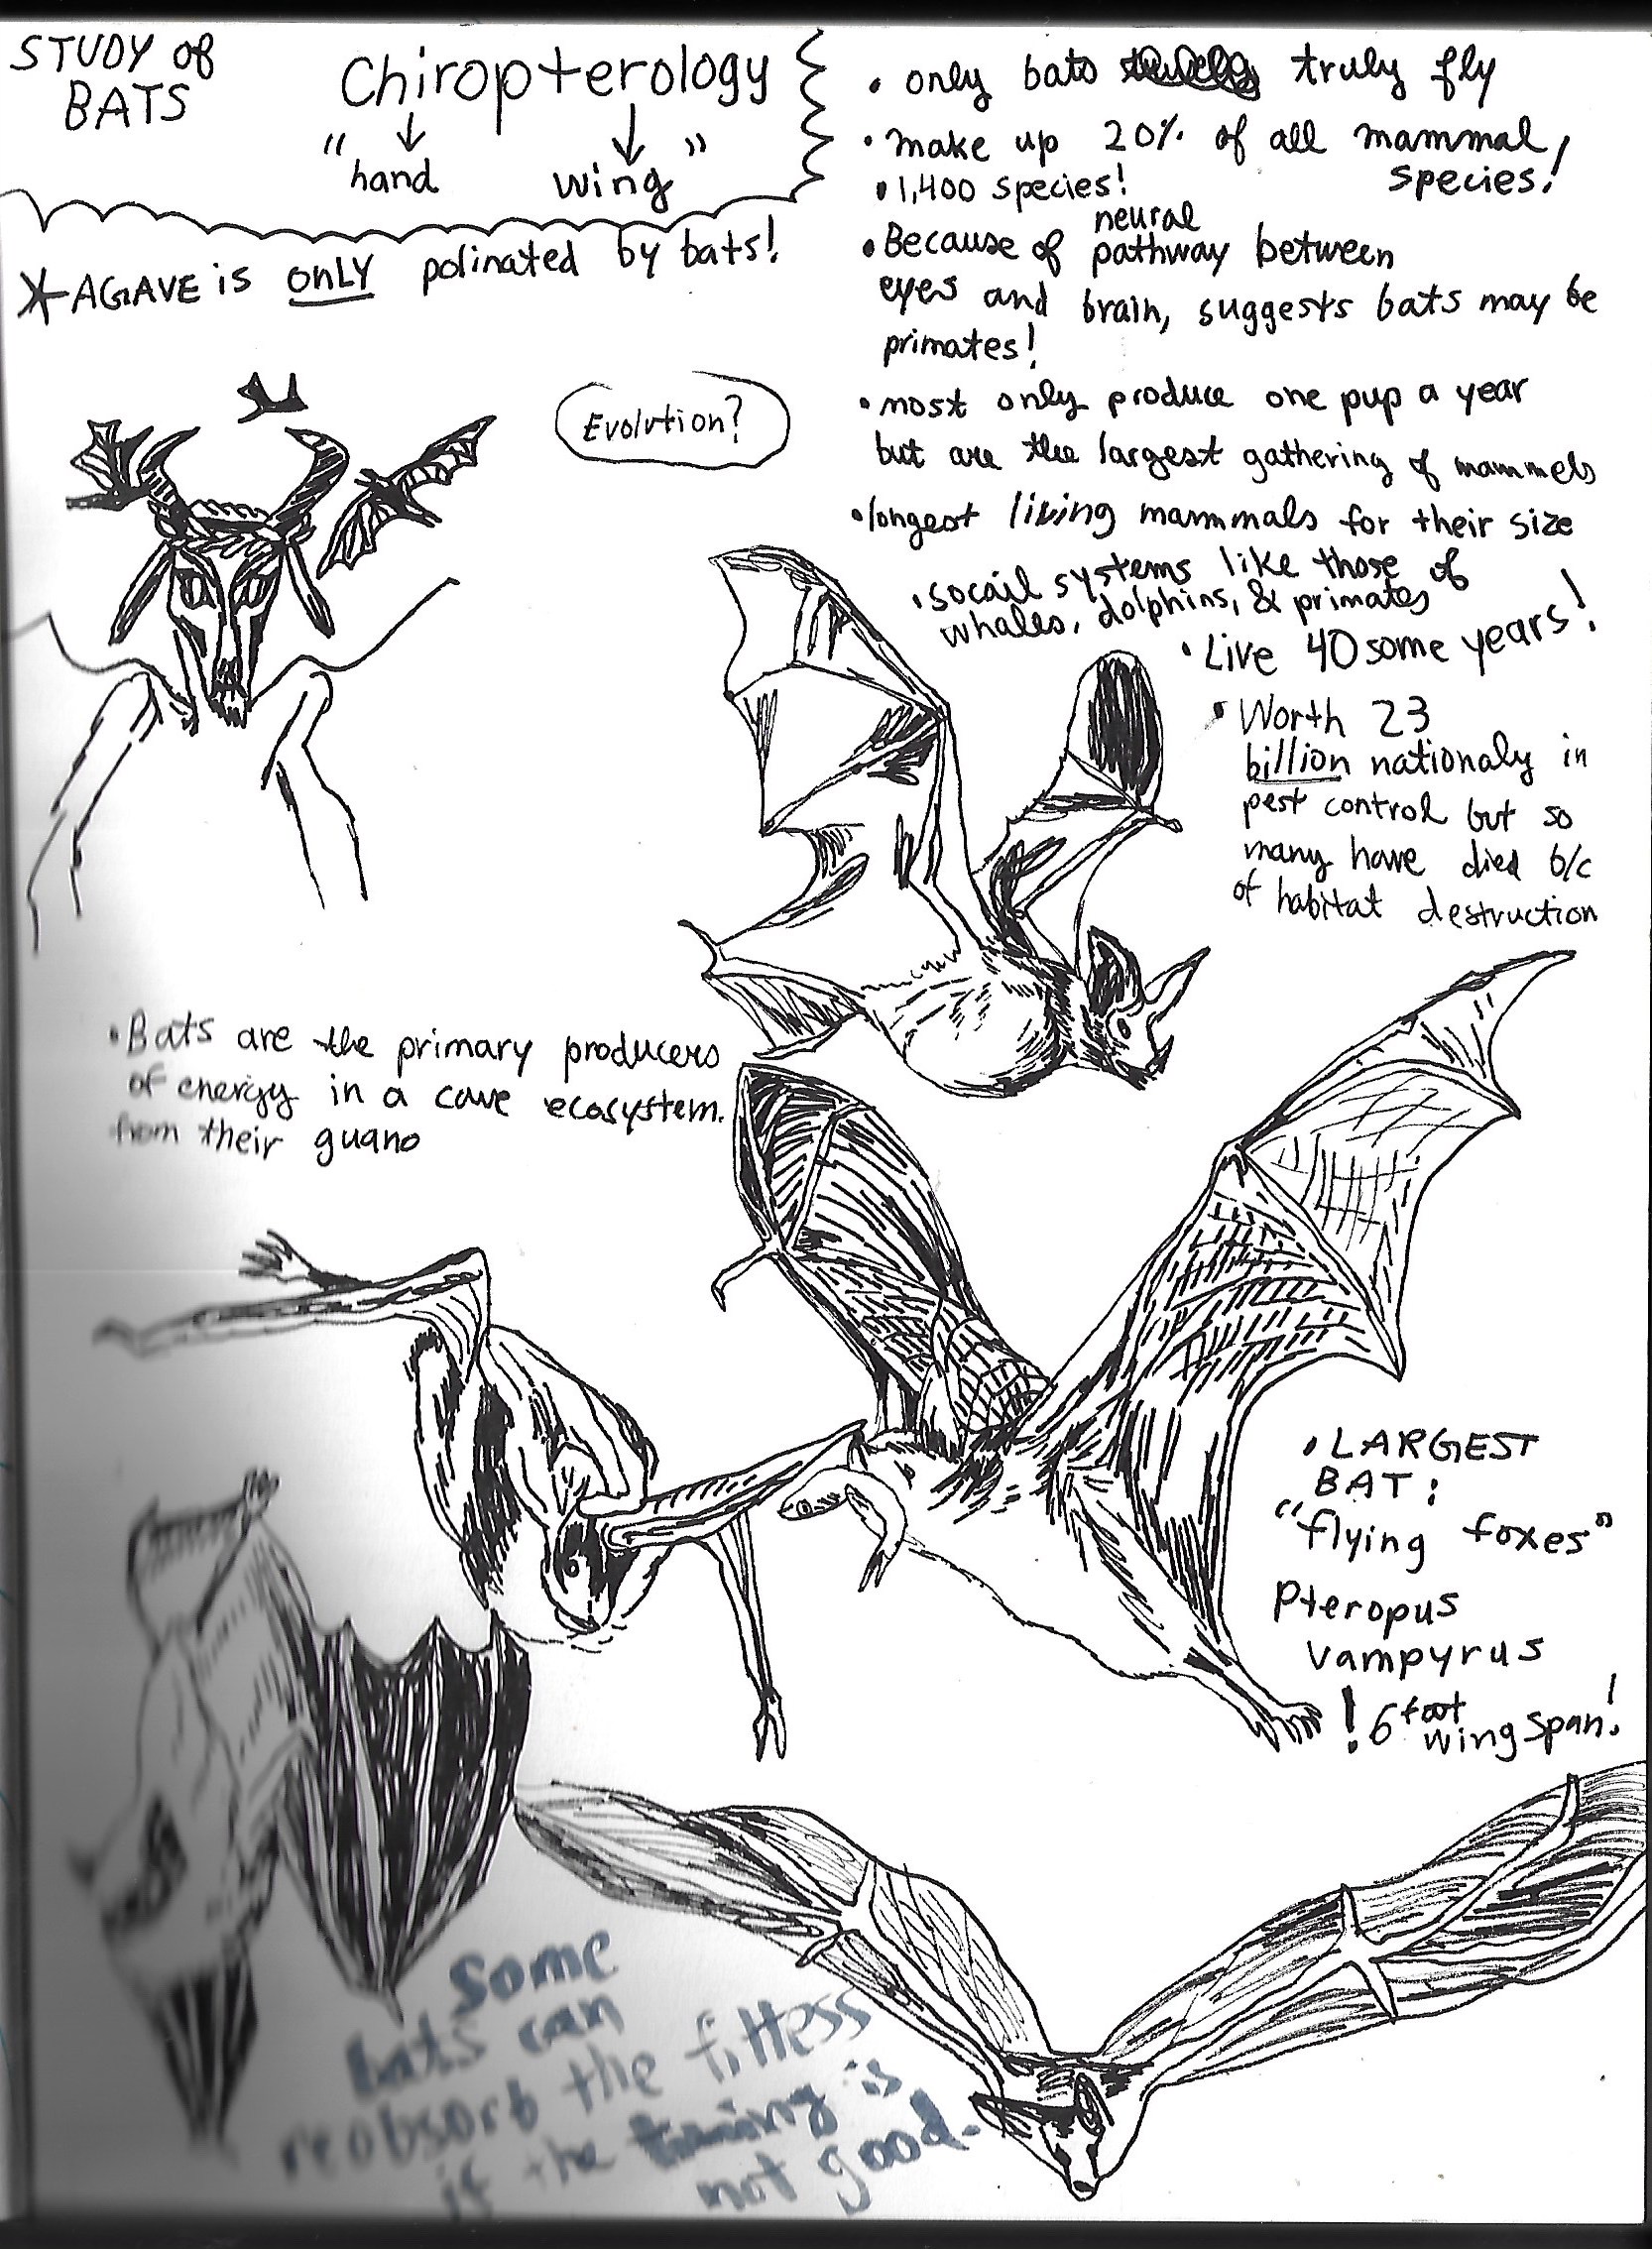 STUDY of
BATS
Chiropterology
"hand wing"
* AGAVE is ONLY polinated by bats!
• only bats truly fly
• make up 20% of all mammal
species!
• 1,400 species!
• Because of neural pathway between
eyes and brain, suggests bats may be
primates!
• most only produce one pup a year
but are the largest gathering of mammels
• longest living mammals for their size
• socail systems like those of
whales, dolphins, & primates
• Live 40 some years!
• Worth 23
billion nationaly in
pest control but so
many have died b/c
of habitat destruction
Evolution?
• Bats are the primary producers
of energy in a cave ecosystem.
from their guano
• LARGEST
BAT:
"flying foxes"
Pteropus
vampyrus
! 6 foot
wing span!
some
bats can
reobsorb the fittess
if the timing is
not good.